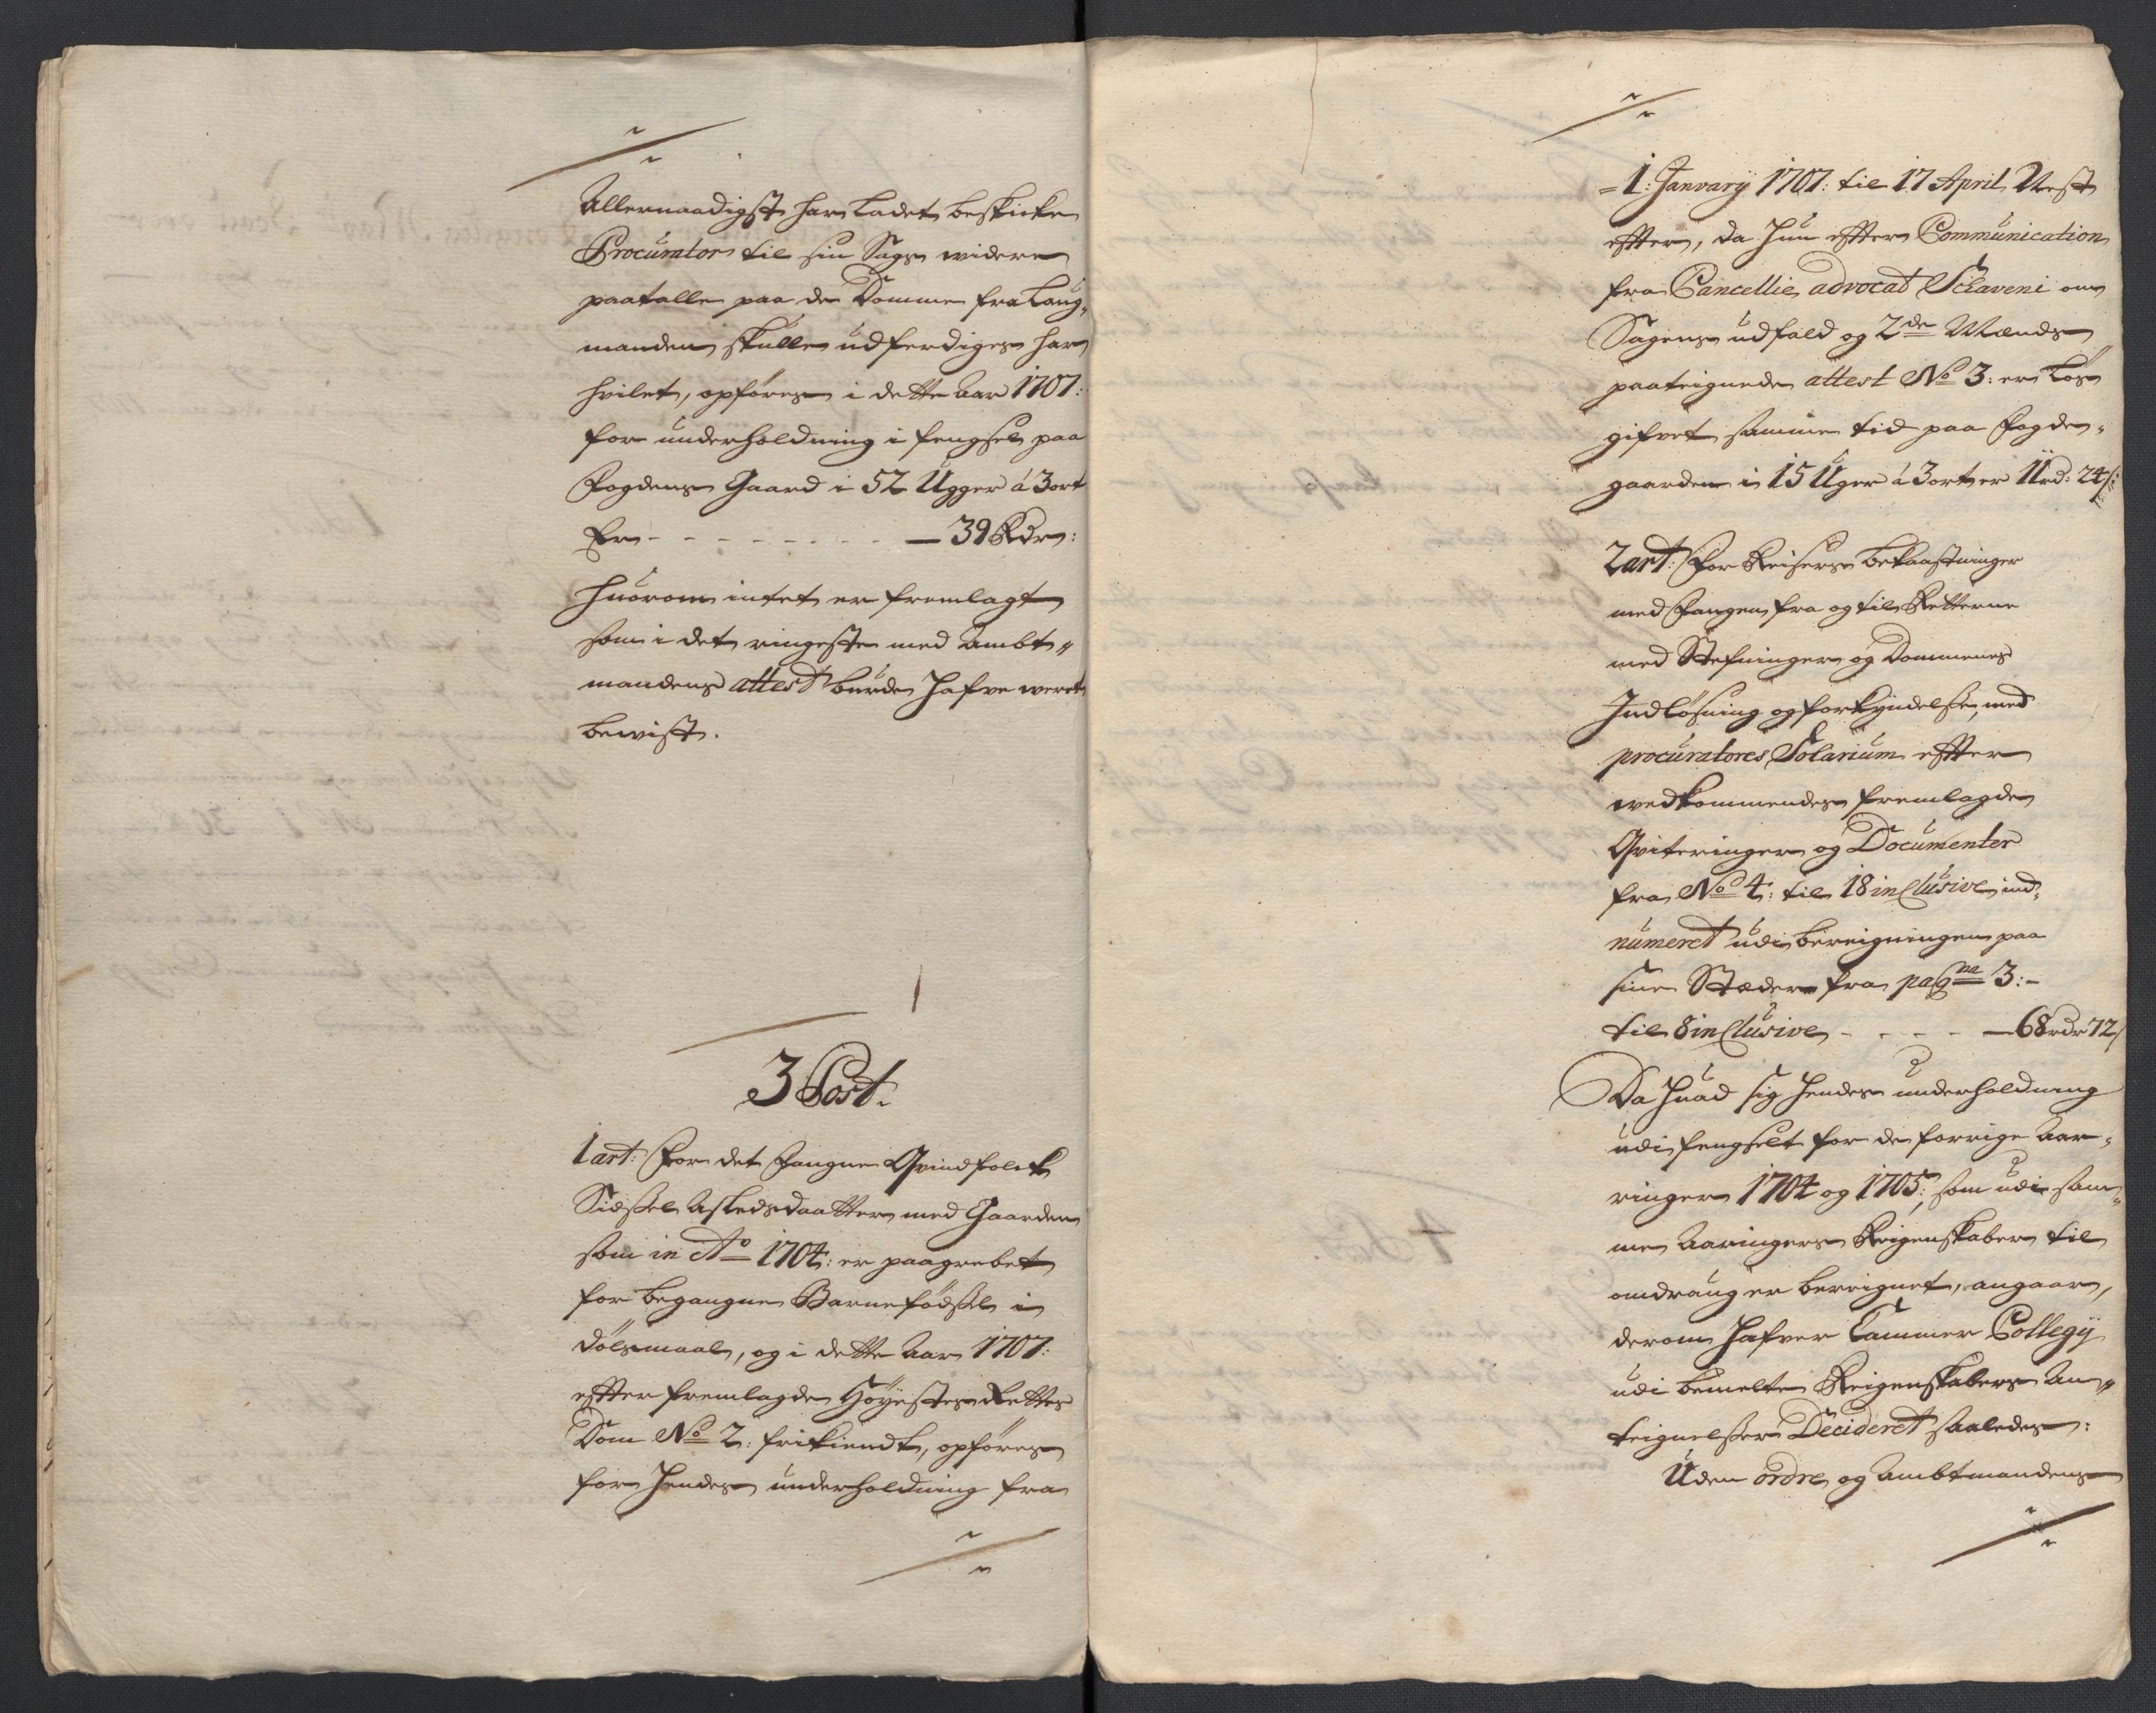 Allernaadigst har Ladet beskicke
Procurator til sin Sags widere
paatalle paa de Domme fra Laug¬
manden skulle udferdiges har
hvilet, opföres i dette Aar 1707:
for underholdning i fengsel paa
Fogdens Gaard i 52 Ugger á 3 ort
Er - - - - - - - - - 39 Rdr:
huorom intet er fremlagt
som i det ringeste med Ambt„
mandens attest burde hafve weret
bewist.
3 Post.
1 art: For det fangne Qvindfolck
Sidsel Asledsdaatter med Gaarden
som in Ao 1704: er paagrebet
for begangne Barnefödsel i
dölsmaal, og i dette Aar 1707:
efter fremlagde Höyeste Rettes
Dom No 2: frikiendt, opföres
for hendes underholdning fra
1: Janvarÿ 1707: til 17 April Nest
effter, da hun effter Communication
fra Cancellie advocat Sclaveni om
Sagens udfald og 2de Mænds
paateignede attest No 3: er Lös
gifvet samme tid paa Fogde„
gaarden i 15 Uger á 3 ort er 11 rd: 24 s:
2 art: For Reisers bekaastninger
med Fangen fra og til Retterne
med Stefninger og Dommenes
Indlösning og forkyndelse, med
procuratores Solarium effter
wedkommendes fremlagde
Qviteringer og Documenter
fra No 4: til 18 inclusive ind¬
numeret udi bereigningen paa
sine Stæder fra pagna 3: -
til 8 inclusive - - - - 68 rdr 72 s
Da huad sig hendes underholdning
udi fengselt for de forrige Aar¬
ringer 1704 og 1705: som udi sam„
me Aaringers Reigenskaber til
omdraug er bereignet, angaar,
derom hafver Cammer Collegÿ
udi bemelte Reigenskabers An„
teignelser Decideret saaledes:
Uden ordre og Ambtmandens